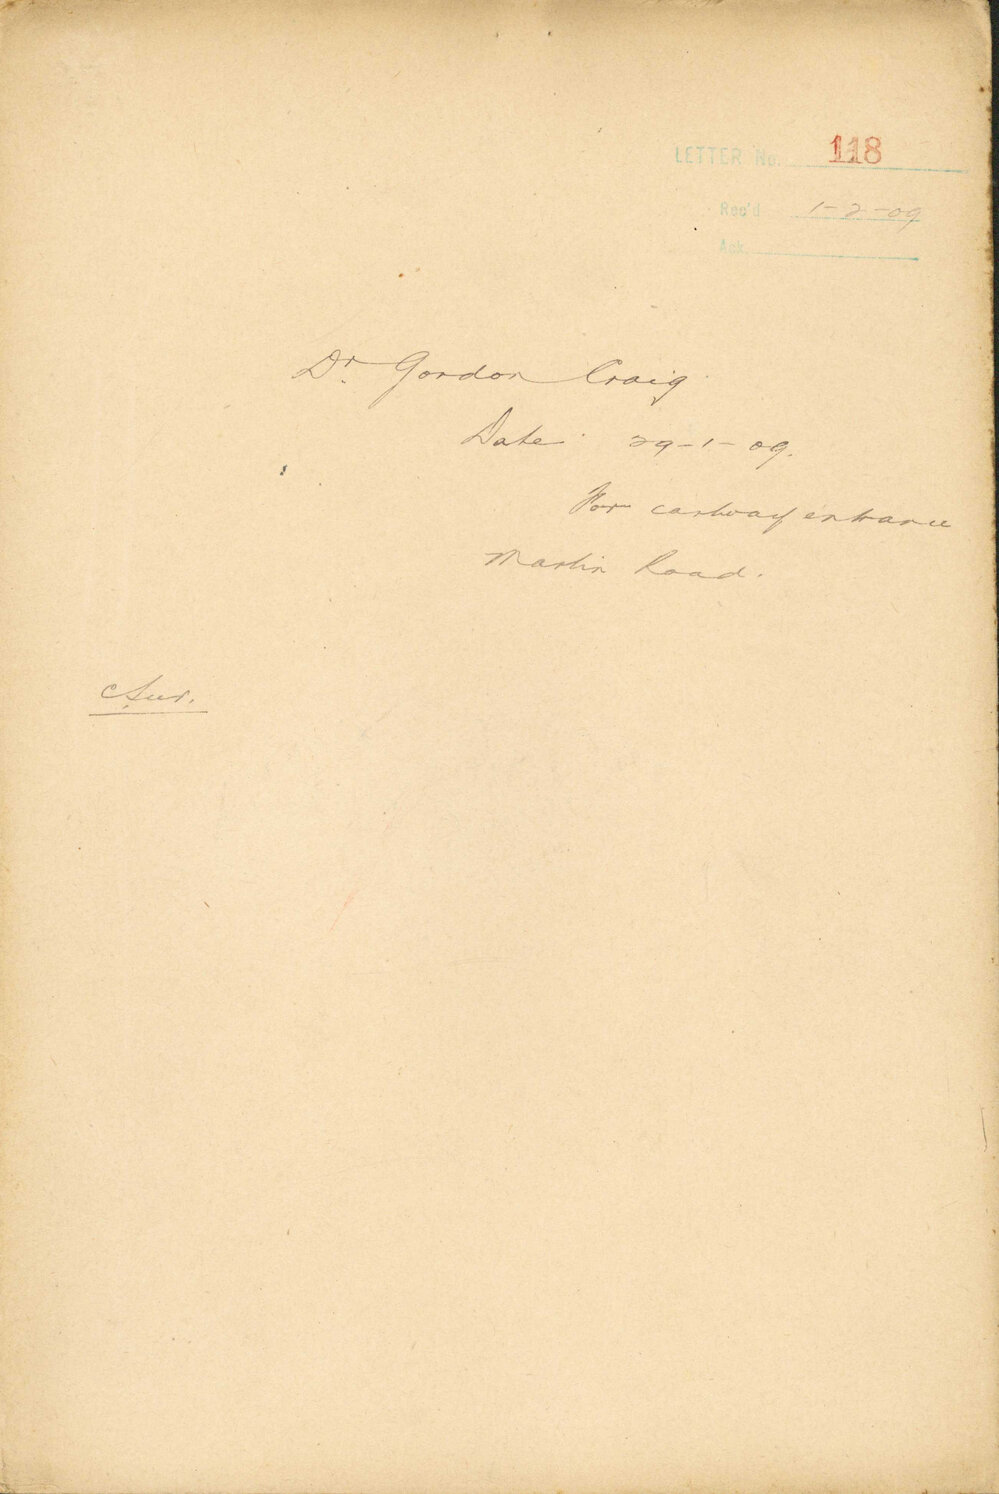 LETTER No. 118
Rec'd 1-2-09
Ack.
Dr. Gordon Craig
Date: 29-1-09.
For cartway entrance
Martin Road.